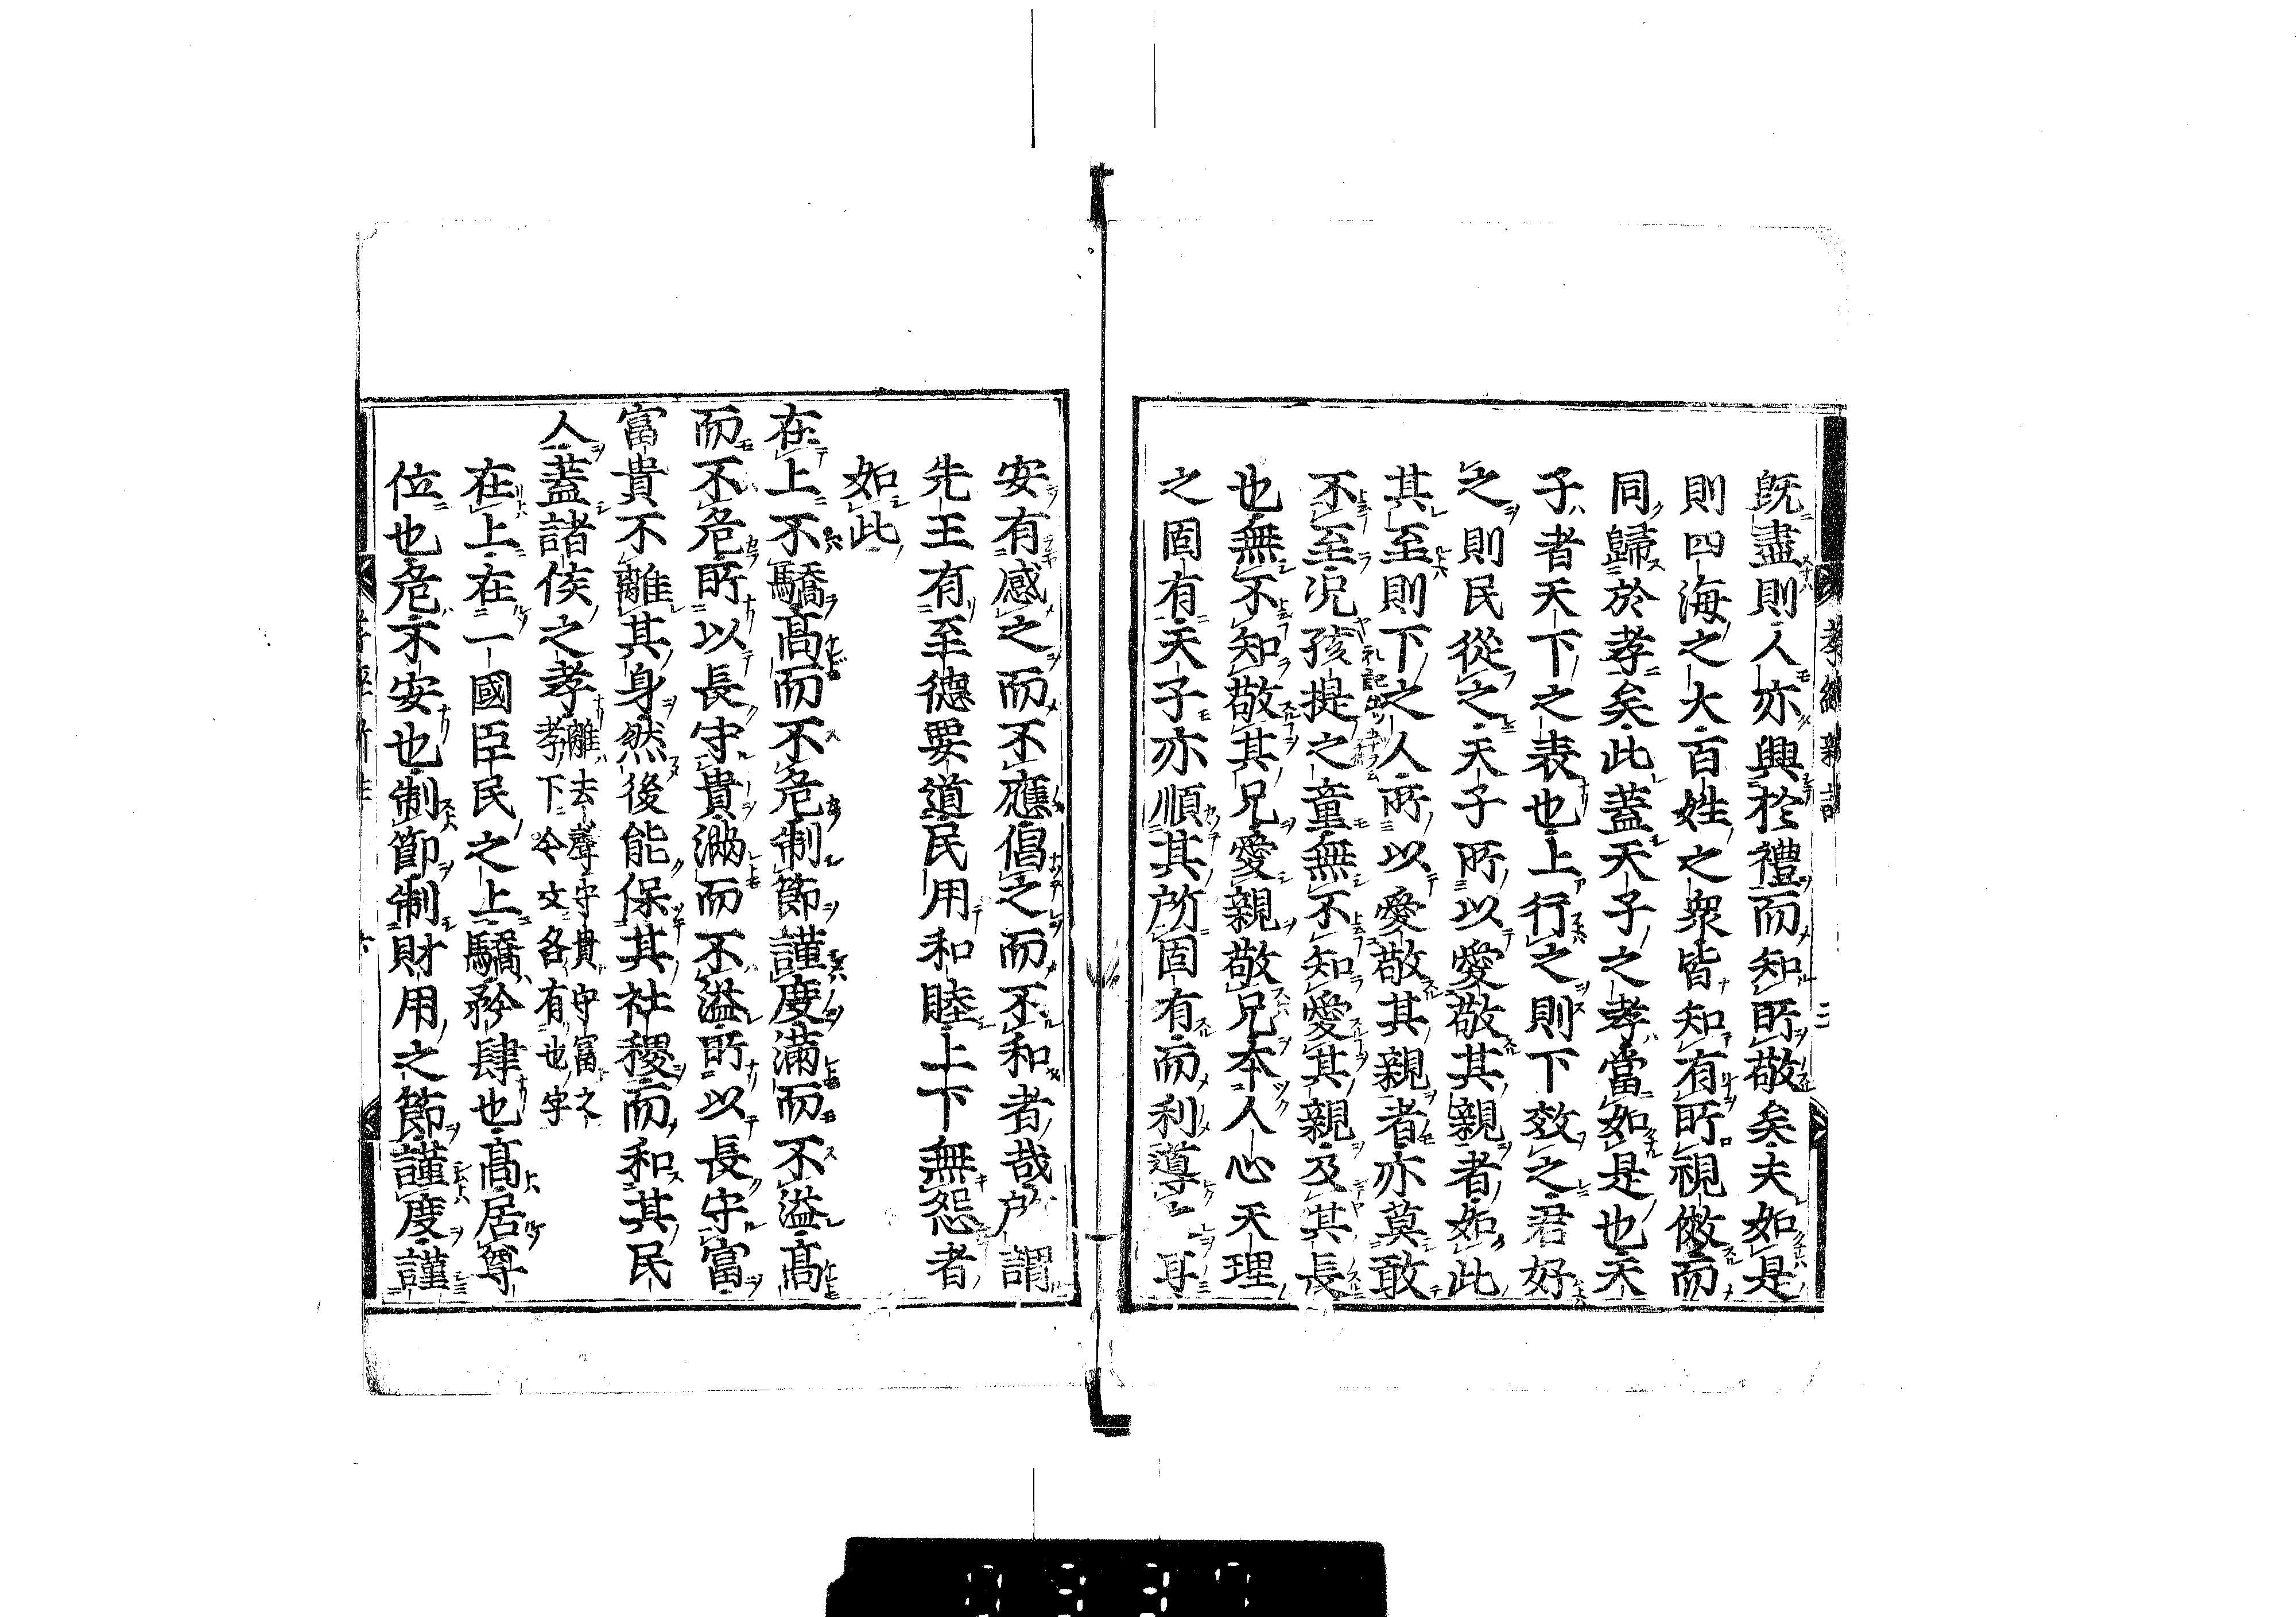 既盡則人亦興於禮而知所敬矣夫如是
則四海之大百姓之衆皆知有所視倣而
同歸於孝矣此蓋天子之孝當如是也天
子者天下之表也上行之則下效之君好
之則民從之天子所以愛敬其親者如此
其至則下之人所以愛敬其親者亦莫敢
不至況孩提之童無不知愛其親及其長
也無不知敬其兄愛親敬兄本人心天理
之固有天子亦順其所固有而利導耳
安有感之而不應倡之而不和者哉謂
先王有至德要道民用和睦上下無怨者
如此
在上不驕高而不危制節謹度滿而不溢高
而不危所以長守貴滿而不溢所以長守富
富貴不離其身然後能保其社稷而和其民
人蓋諸侯之孝離去聲守貴守富之
孝下今文各有也字
在上在一國臣民之上驕矜肆也高居尊
位也危不安也制節制財用之節謹度謹